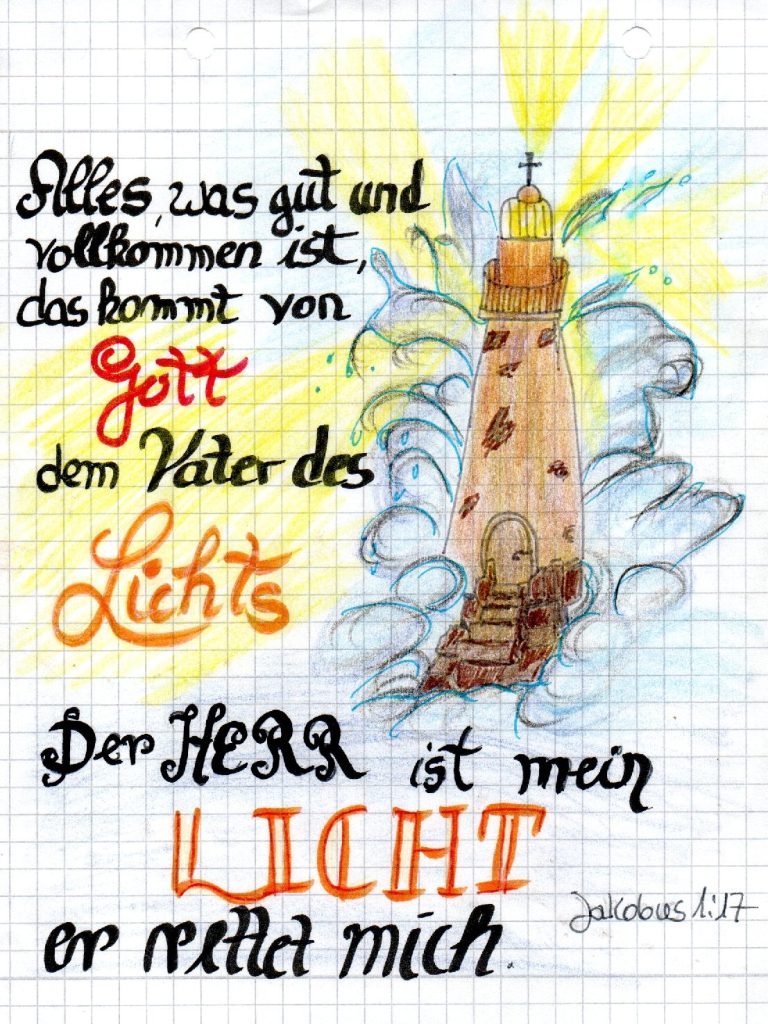 Alles, was gut und
vollkommen ist,
das kommt von
Gott
dem Vater des
Lichts
Der HERR ist mein
LICHT
er rettet mich.
Jakobus 1:17